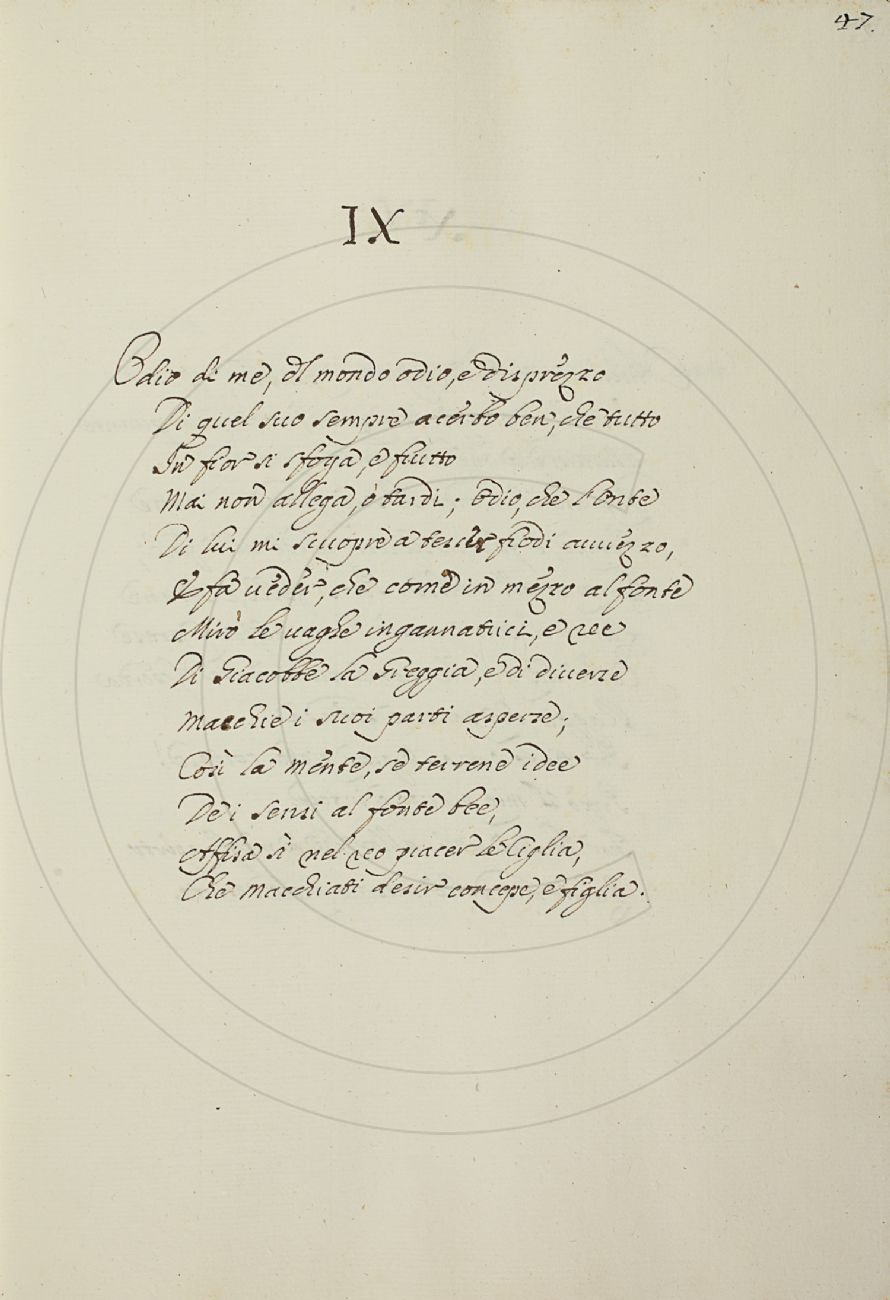 47.
IX
Odio di me, del mondo odio, e disprezzo
Di quel suo sempre acerbo ben, che tutto
In fior si sfoga, e frutto
Mai non allega, ò tardi; Odio, che l'onte
Di lui mi scuopre à tesser frodi avvezzo,
E fà veder, che come in mezzo al fonte
Mirò le vaghe ingannatrici, e ree
Di Giacobbe la Greggia, e di diverse
Macchie i suoi parti asperse;
Così la mente, se terrene idee
De i sensi al fonte bee,
Affisa sì nel reo piacer le Ciglia,
Che macchiati desir concepe, e figlia.